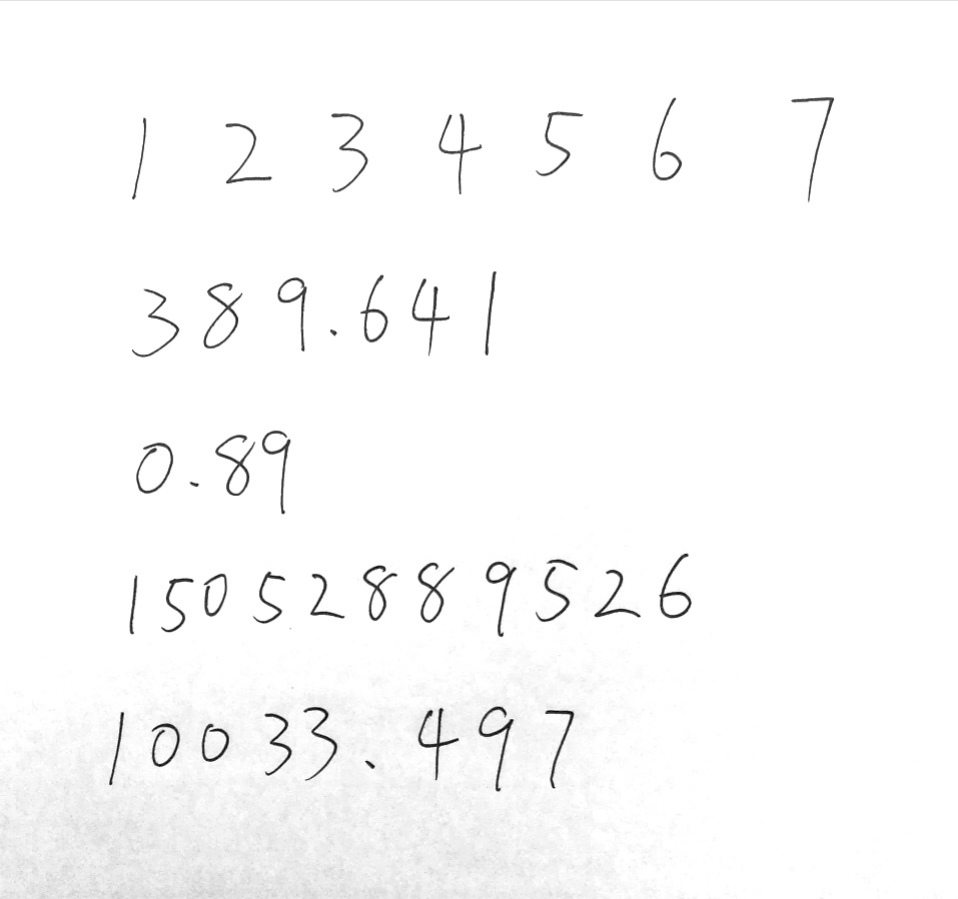 1 2 3 4 5 6 7
389.641
0.89
15052889526
10033.497